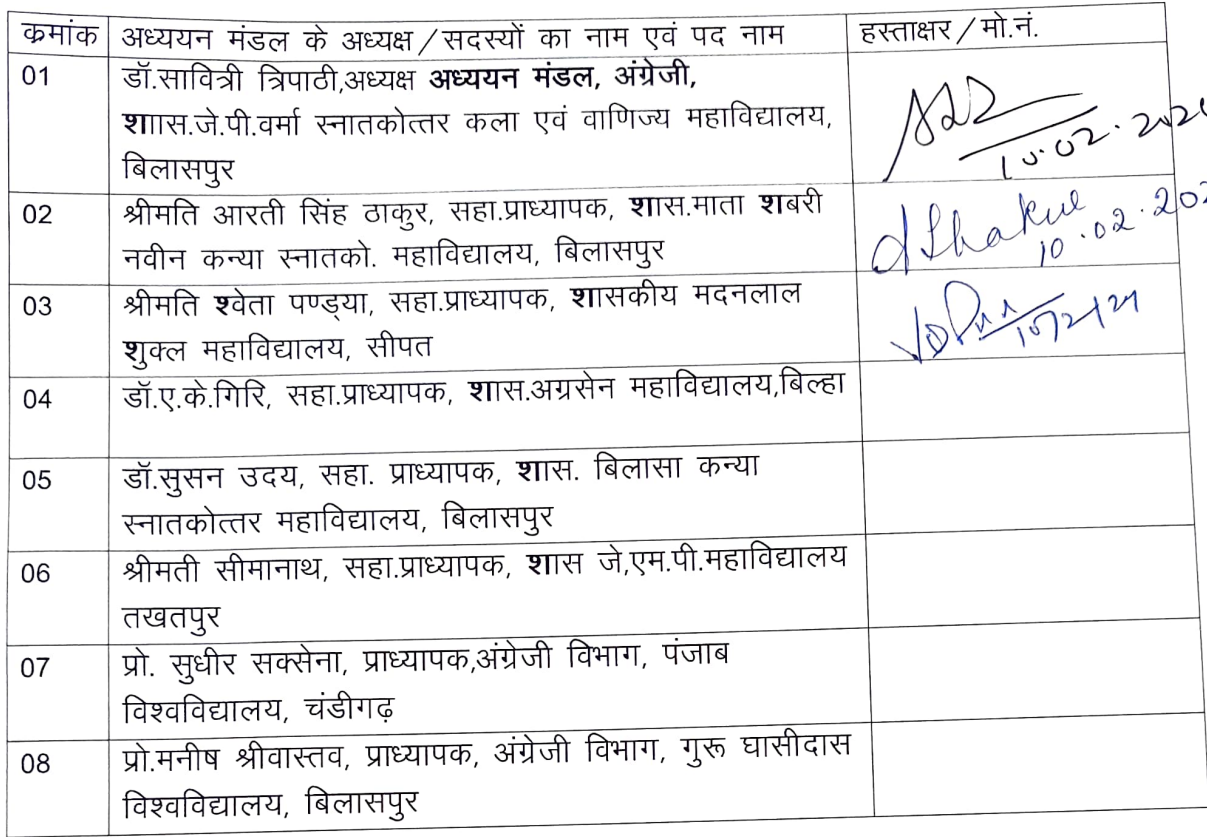 क्रमांक अध्ययन मंडल के अध्यक्ष/सदस्यों का नाम एवं पद नाम हस्ताक्षर/मो.नं.
01 डॉ.सावित्री त्रिपाठी,अध्यक्ष अध्ययन मंडल, अंग्रेजी,
शाास.जे.पी.वर्मा स्नातकोत्तर कला एवं वाणिज्य महाविद्यालय,
बिलासपुर
10.02.202
02 श्रीमति आरती सिंह ठाकुर, सहा.प्राध्यापक, शास.माता शबरी
नवीन कन्या स्नातको. महाविद्यालय, बिलासपुर
10.02.202
03 श्रीमति श्वेता पण्ड्या, सहा.प्राध्यापक, शासकीय मदनलाल
शुक्ल महाविद्यालय, सीपत
04 डॉ.ए.के.गिरि, सहा.प्राध्यापक, शास.अग्रसेन महाविद्यालय,बिल्हा
05 डॉ.सुसन उदय, सहा. प्राध्यापक, शास. बिलासा कन्या
स्नातकोत्तर महाविद्यालय, बिलासपुर
06 श्रीमती सीमानाथ, सहा.प्राध्यापक, शास जे,एम.पी.महाविद्यालय
तखतपुर
07 प्रो. सुधीर सक्सेना, प्राध्यापक,अंग्रेजी विभाग, पंजाब
विश्वविद्यालय, चंडीगढ़
08 प्रो.मनीष श्रीवास्तव, प्राध्यापक, अंग्रेजी विभाग, गुरू घासीदास
विश्वविद्यालय, बिलासपुर